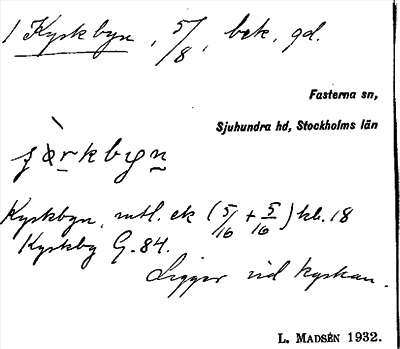 1 Kyrkbyn, 5/8, bek. gd.
Fasterna sn,
Sjuhundra hd, Stockholms län
Kyrkbyn, mtl. ek (5/16 + 5/16) kl. 18
Kyrkby G. 84.
Ligger vid kyrkan.
L. MADSÉN 1932.